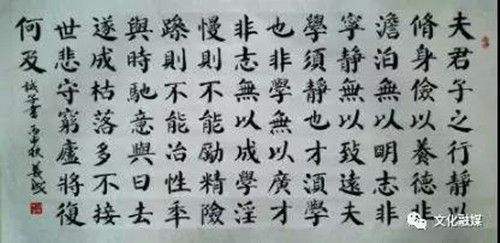 夫君子之行靜以
脩身儉以養德非
澹泊無以明志非
寧靜無以致遠夫
學須靜也才須學
也非學無以廣才
非志無以成學淫
慢則不能勵精險
躁則不能治性年
與時馳意與日去
遂成枯落多不接
世悲守窮廬將復
何及
誡子書 丙申秋
文化融媒